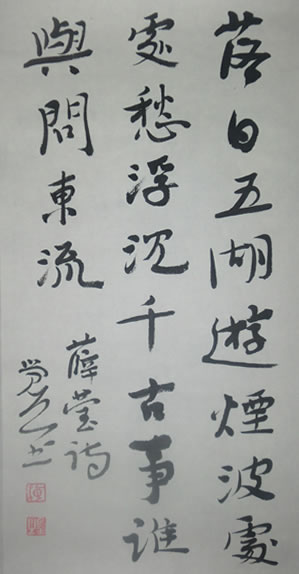 落日五湖遊煙波處
處愁浮沈千古事誰
與問東流
薛瑩詩